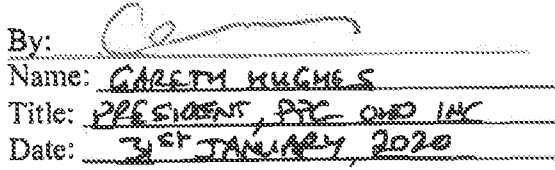 By:
Name: GARETH HUGHES
Title: PRESIDENT, PTC OHIO INC
Date: 31ST JANUARY, 2020